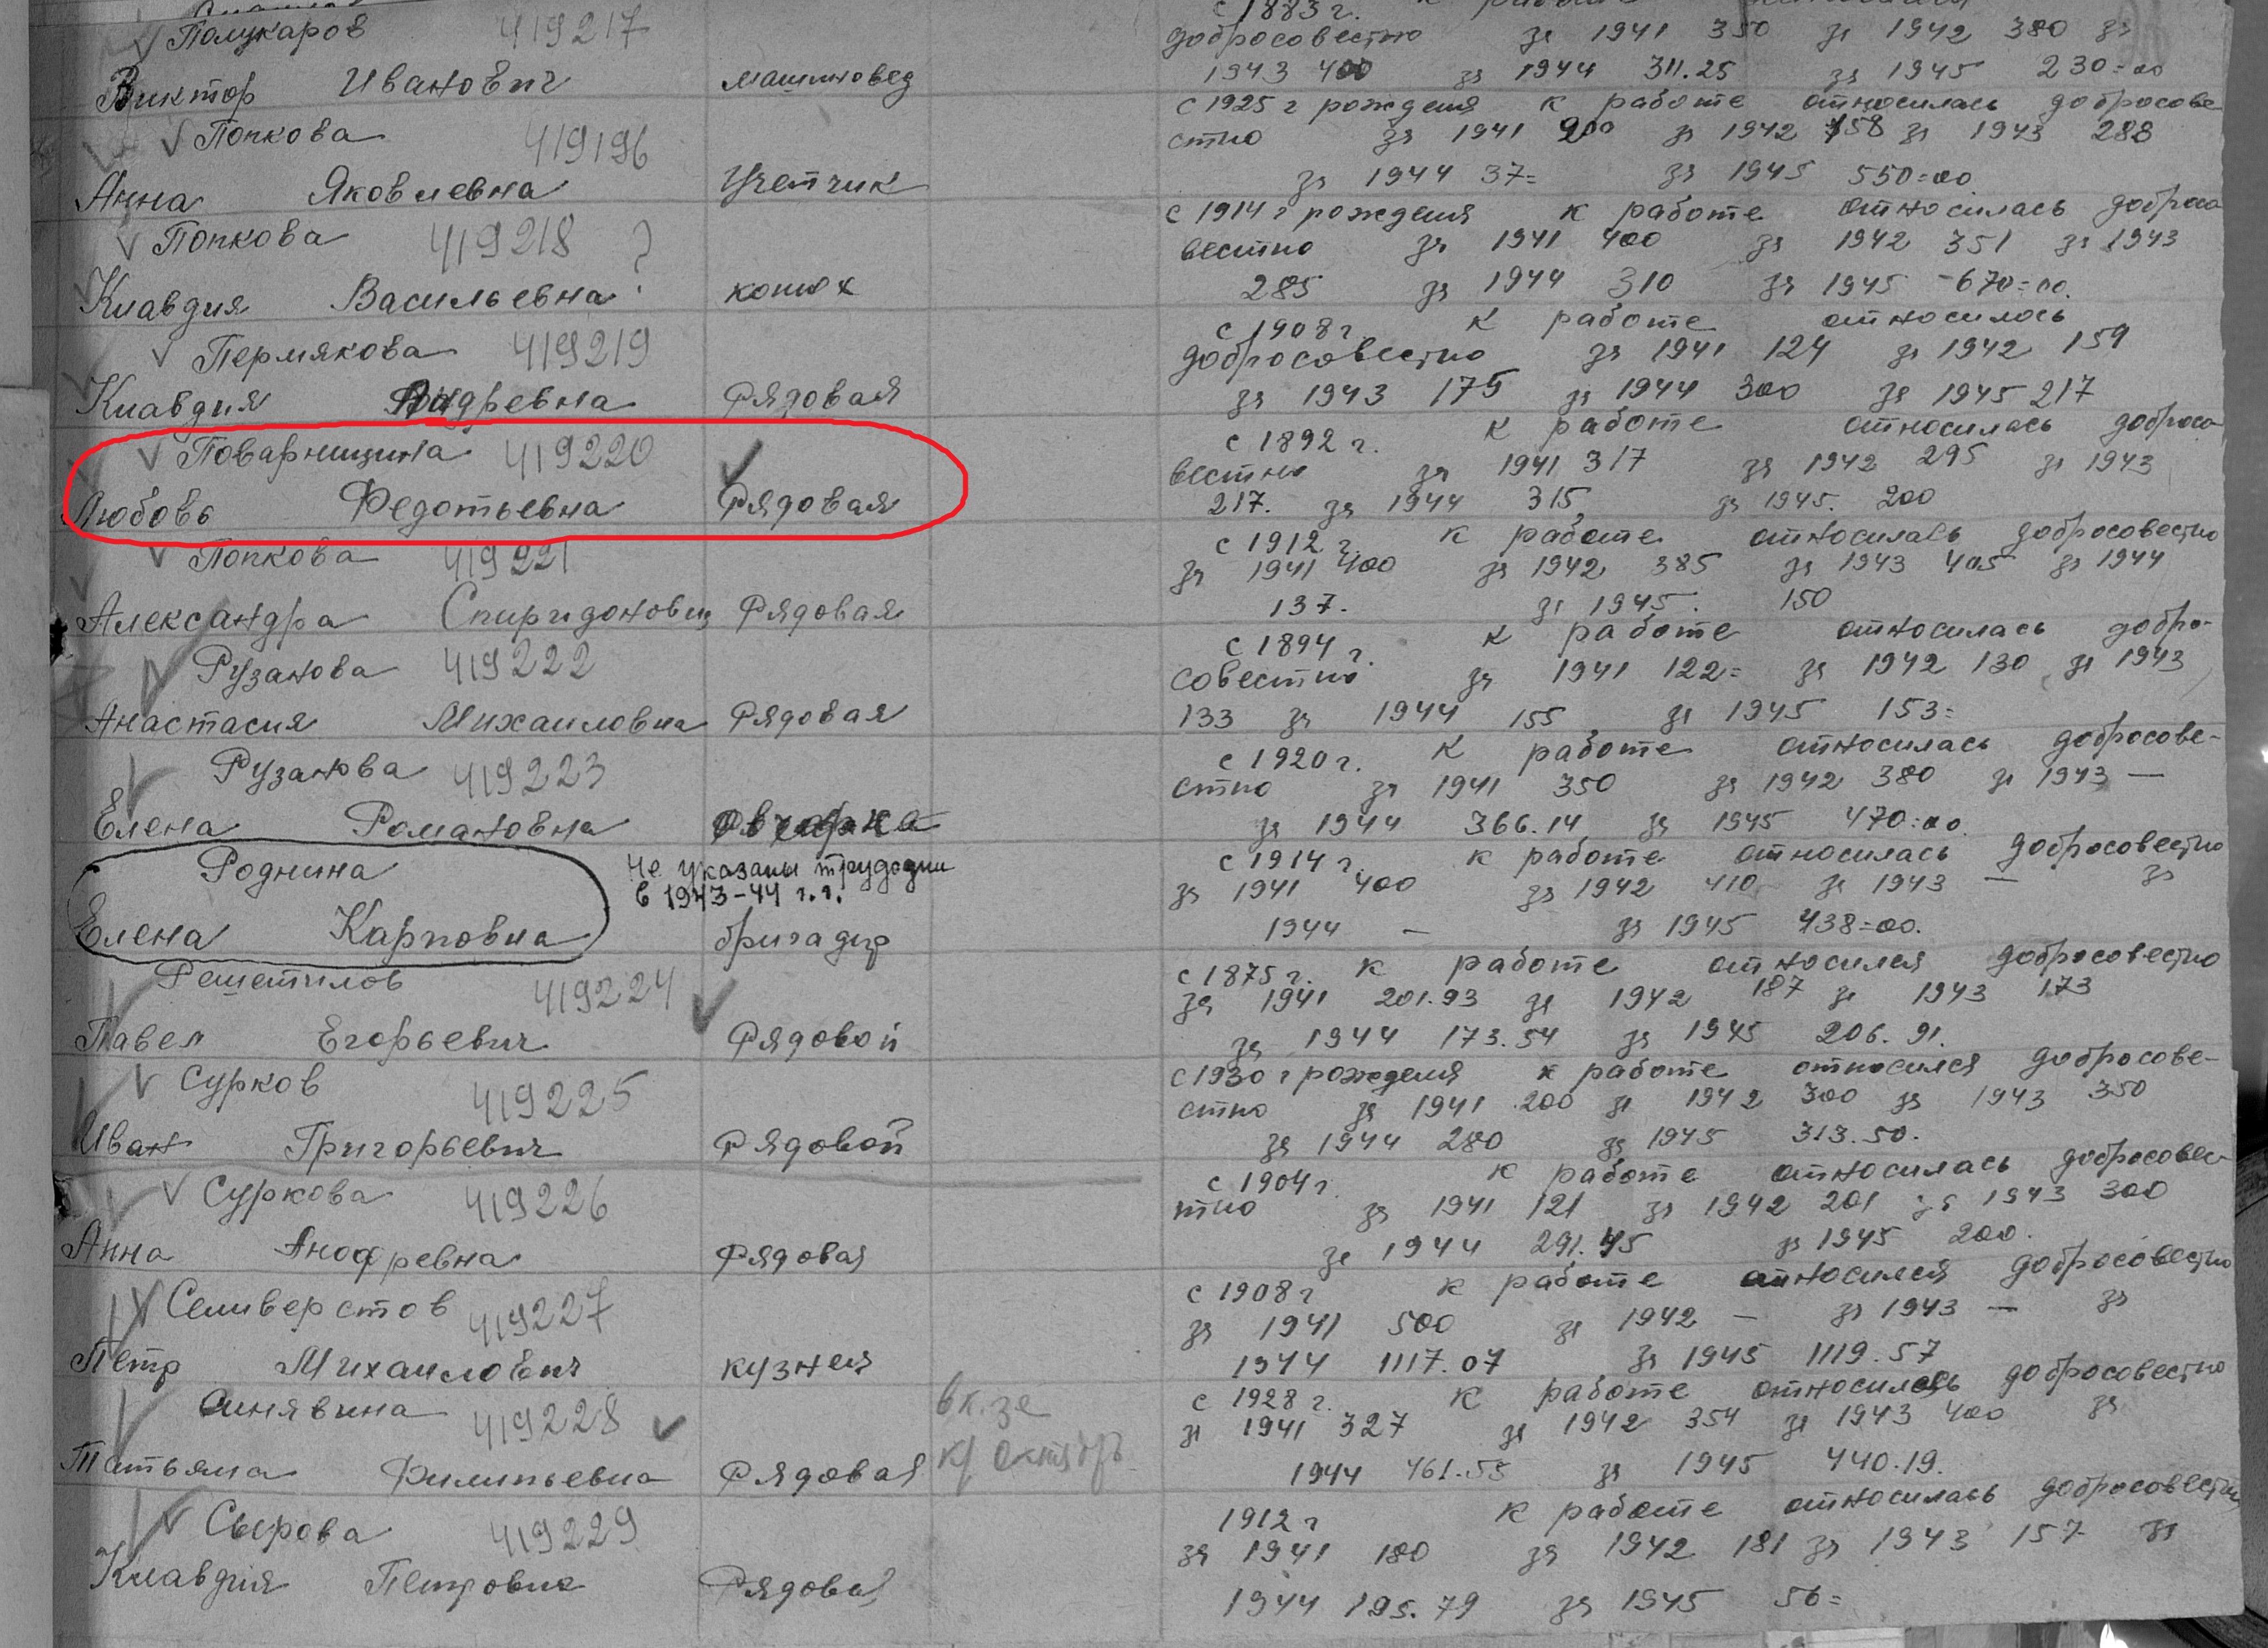 с 1883 г. к работе
Полукаров 419217 добросовестно за 1941 350 за 1942 380 за
Виктор Иванович машиновед 1943 400 за 1944 311.25 за 1945 230=00
с 1925 г рождения к работе относилась добросове-
Попкова 419196 стно за 1941 200 за 1942 158 за 1943 288
Анна Яковлевна Учетчик за 1944 37= за 1945 550=00
с 1914 г рождения к работе относилась доброса
Попкова 419218 ? вестно за 1941 400 за 1942 351 за 1943
Клавдия Васильевна конюх 285 за 1944 310 за 1945 -670=00.
с 1908 г к работе относилось
Пермякова 419219 добросовестно за 1941 124 за 1942 159
Клавдия Андревна Рядовая за 1943 175 за 1944 300 за 1945 217
с 1892 г. к работе относилась доброса
Поварницина 419220 вестно за 1941 317 за 1942 295 за 1943
Любовь Федотьевна Рядовая 217. за 1944 315 за 1945. 200
с 1912 г. к работе относилась добросовестно
Попкова 419221 за 1941 400 за 1942 385 за 1943 405 за 1944
Александра Спиридоновн Рядовая 137. за 1945. 150
с 1894 г. к работе относилась добро-
Рузанова 419222 совестно за 1941 122= за 1942 130 за 1943
Анастасия Михаиловна Рядовая 133 за 1944 155 за 1945 153=
с 1920 г. к работе относилась добросове-
Рузанова 419223 стно за 1941 350 за 1942 380 за 1943 —
Елена Романовна овчарка за 1944 366.14 за 1945 470=00.
с 1914 г. к работе относилась добросовестно
Роднина Не указаны трудодни за 1941 400 за 1942 410 за 1943 — за
в 1943-44 г.г.
Елена Карповна бригадир 1944 — за 1945 438=00.
с 1875 г. к работе относился добросовестно
Решетилов 419224 за 1941 201.93 за 1942 187 за 1943 173
Павел Егорьевич Рядовой за 1944 173.54 за 1945 206.91.
с 1930 г рождения к работе относился добросове-
Сурков 419225 стно за 1941 200 за 1942 300 за 1943 350
Иван Григорьевич Рядовой за 1944 280 за 1945 313.50.
с 1904 г. к работе относилась добросовес-
Суркова 419226 тно за 1941 121 за 1942 201 за 1943 300
Анна Анофревна Рядовая за 1944 291.45 за 1945 200.
с 1908 г к работе относился добросовестно
Селиверстов 419227 за 1941 500 за 1942 — за 1943 — за
Петр Михаилович кузнец 1944 1117.07 за 1945 1119.57
с 1928 г. к работе относилась добросовестно
Синявина 419228 вк. зе за 1941 327 за 1942 354 за 1943 400 за
Татьяна Филипьевна Рядовая к/ октябрь 1944 461.55 за 1945 440.19.
1912 г к работе относилась добросовестно
Сырова 419229 за 1941 180 за 1942 181 за 1943 157 за
Клавдия Петровна Рядовая 1944 195.79 за 1945 56=